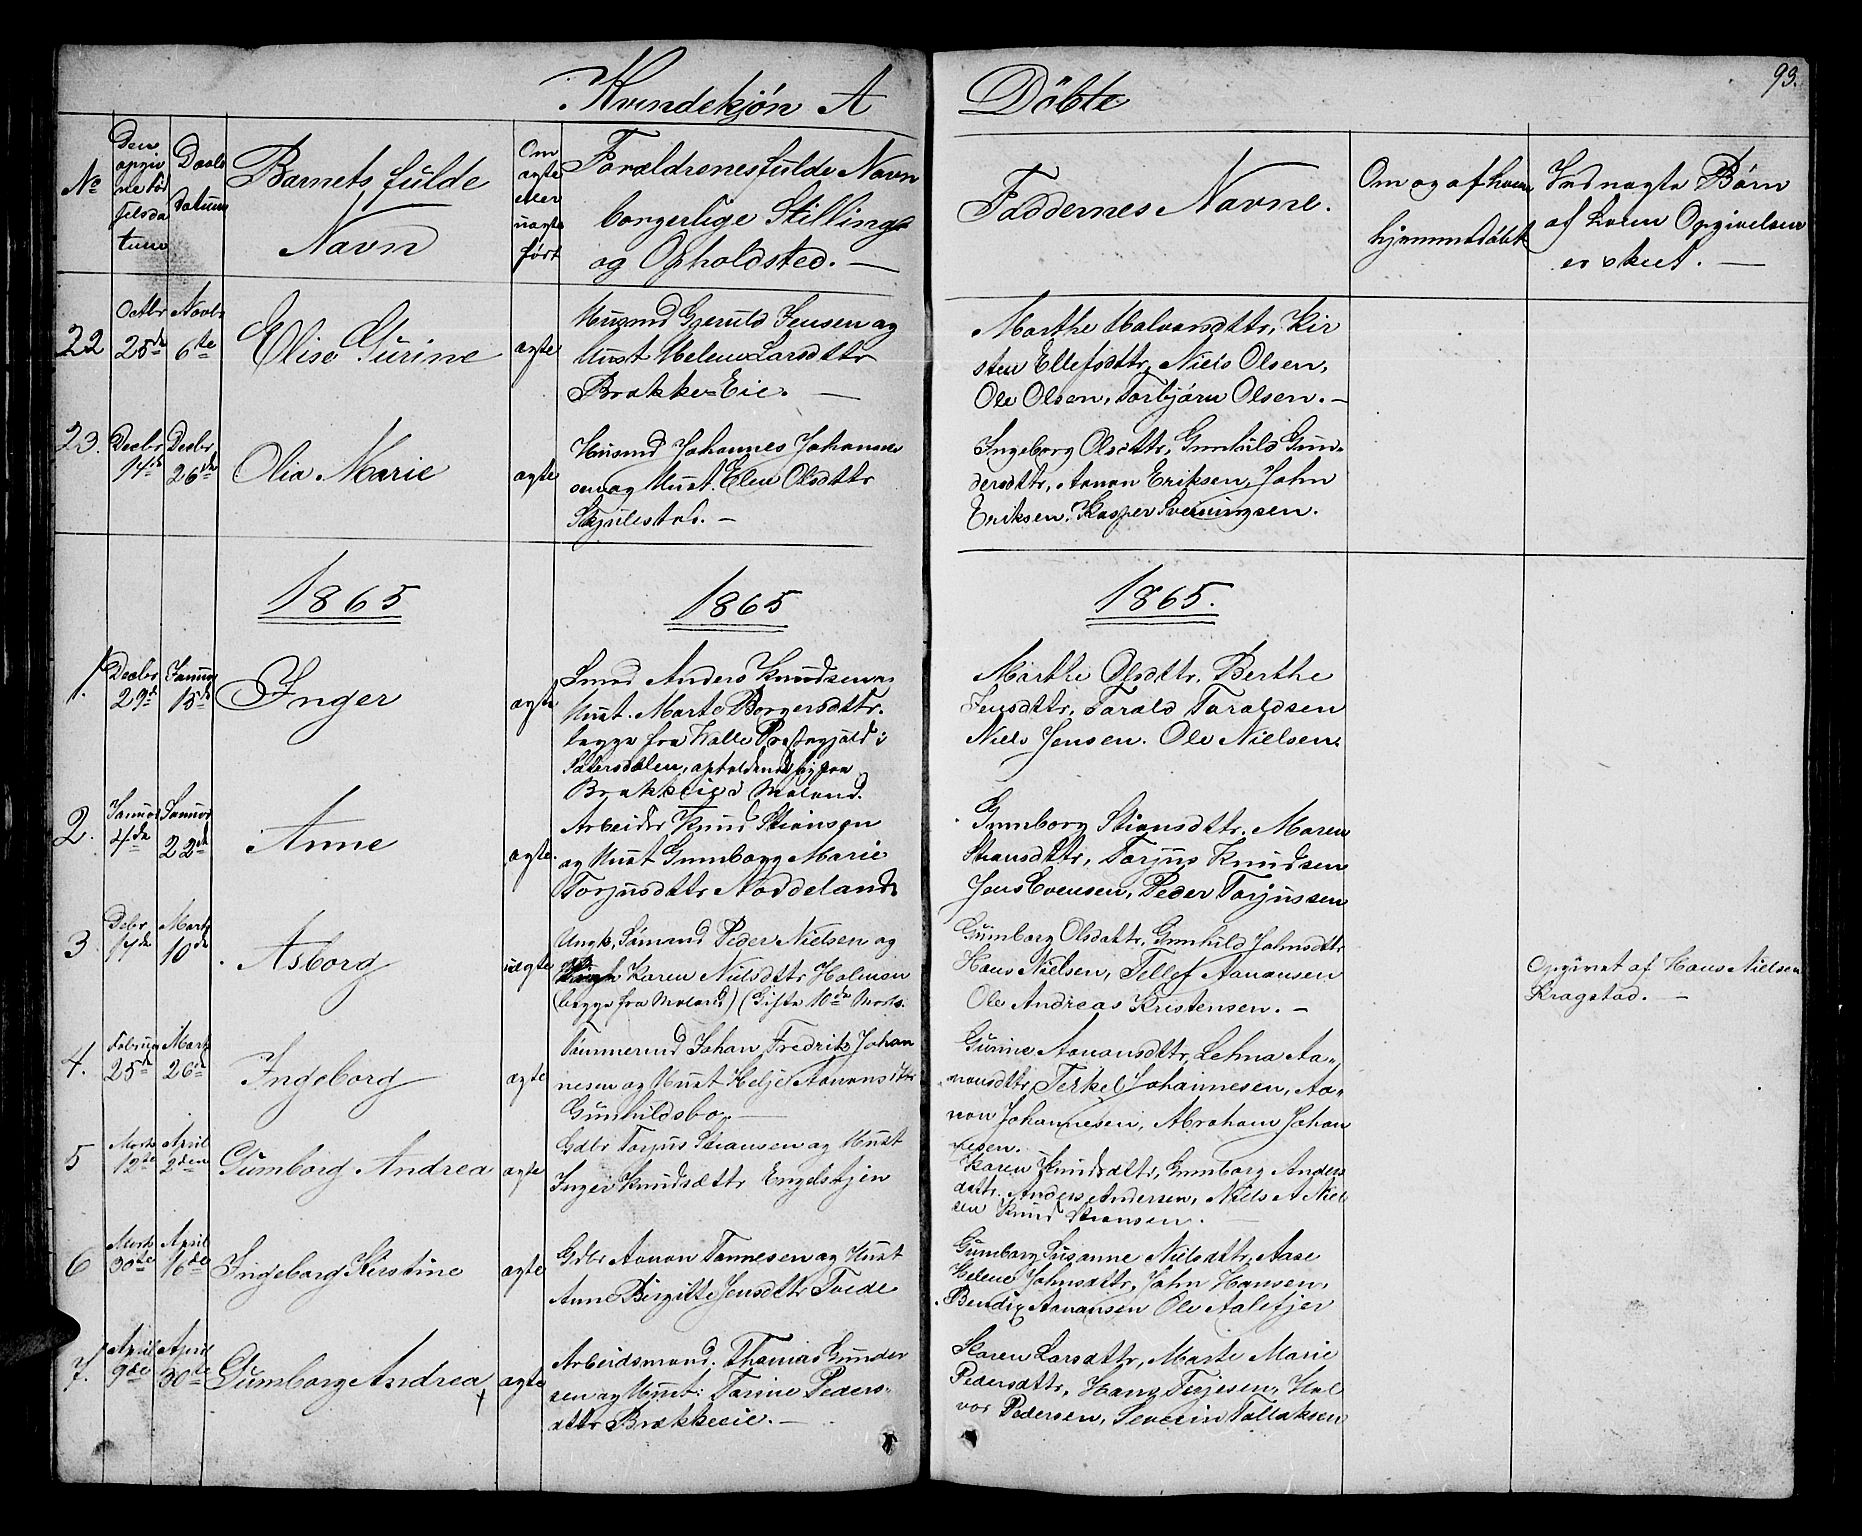 Kvindekjøn A Døbte 93.
No
Den opgivne fødselsdatum
Daabs Datum
Barnets fulde Navn
Om ægte eller uægte født
Forældrenes fulde Navn borgerlige Stilling og Opholdsted. —
Faddernes Navne.
Om og af hvem hjemmedøbt
Ind uægte Børn af hvem Opgivelsen er skeet. —
22 Octbr 25de Novbr 6te Elise Gurine ægte
Husmd Gjeruld Jensen og
Hust Helene Larsdttr
Brække=Eie. —
Marthe Halvorsdttr, Kir
sten Ellefsdttr, Niels Olsen,
Ole Olsen, Torbjørn Olsen. —
23. Decbr 14de Decbr 26de Olia Marie ægte
Husmd Johannes Johanne
sen og Hust. Elen Olsdttr
Skjulestad. —
Ingeborg Olsdttr, Gunhild Gun=
dersdttr, Aanon Eriksen, John
Eriksen, Kasper Sveinungsen.
1865 1865 1865.
1. Decbr 29de Januar 15de Inger ægte
Smed Anders Knudsen og
Hust. Marte Borgersdttr.
begge fra Valle Præstegjæld i
Sætersdalen, opholdende sig paa
Brækkeeie i Moland.
Marthe Olsdttr, Berthe
Jensdttr, Tarald Taraldsen
Niels Jensen. Ole Nielsen.
2. Januar 4de Januar 22de Anne ægte.
Arbeider Knud Stiansen
og Hust Gunborg Marie
Torjusdttr Næddeland
Gunborg Stiansdttr. Maren
Stiansdttr, Torjus Knudsen
Jens Evensen, Peder Torjussen
3 Marts 10de Asborg uægte
Ungk. Sømand Peder Nielsen og
Karen Nilsdttr Holmen
(begge fra Moland) (Gifte 10de Marts.
Gumborg Olsdattr, Gunhild Johnsdttr
Hans Nielsen, Tellef Aanonsen
Ole Andreas Kristensen. —
Opgivet af Hans Nielsen
Kragstad. —
4. Februar 25de Marts 26de Ingeborg ægte
Tømmermd Johan Fredrik Johan
nesen og Hust Helje Aanonsdttr
Gunhildsbo. —
Gurine Aanonsdttr, Lehna Aa=
nonsdttr, Terkel Johannesen, Aa=
non Johannesen, Abraham Johan
nesen.
5 Marts 12te April 2den Gumborg Andrea ægte
Gdbr Torjus Stiansen og Hust
Inger Knudsdttr Engelstjen
Karen Knudsdttr, Gunborg Anders
dattr. Anders Andersen, Niels A Niel
sen Knud Stiansen.
6 Marts 30te April 16de Ingeborg Kirstine ægte
Gdbr Aanon Tønnesen og Hust
Anne Birgitte Jensdttr Tvede
Gumborg Susanne Nielsdttr, Aase
Helene Johnsdttr, John Hansen,
Bendix Aanonsen Ole Aalefjær
7. April 9de April 30te Gumborg Andrea ægte
Arbeidsmand. Thomas Gunder
sen og Hust: Tarine Peders=
dttr Brækkeeie. —
Karen Larsdttr, Marte Marie
Pedersdttr, Hans Terjesen, Hal
vor Pedersen, Severin Tallaksen